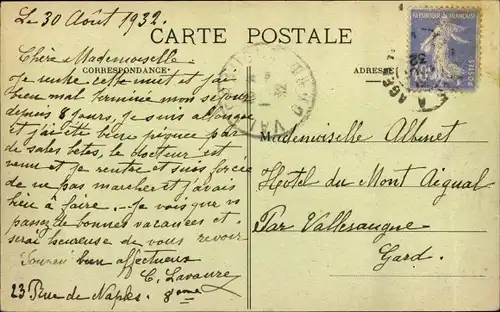 Le 30 Août 1932.
CARTE POSTALE
Chère Mademoiselle.
CORRESPONDANCE
ADRESSE
Je rentre cette nuit et j'ai
bien mal terminée mon séjour
depuis 8 jours, je suis allongée
et j'ai été bien piquée par
de sales bêtes, le docteur est
venu et je rentre et suis forcée
de ne pas marcher et j'avais
bien à faire. Je vois que vs
passez de bonnes vacances et
serai heureuse de vous revoir
Souvenir bien affectueux
C. Lavaure
23 Rue de Naples. 8eme
REPUBLIQUE FRANÇAISE
POSTES
Mademoiselle Albenet
Hôtel du Mont Aigual
Par Valleraugue
Gard.